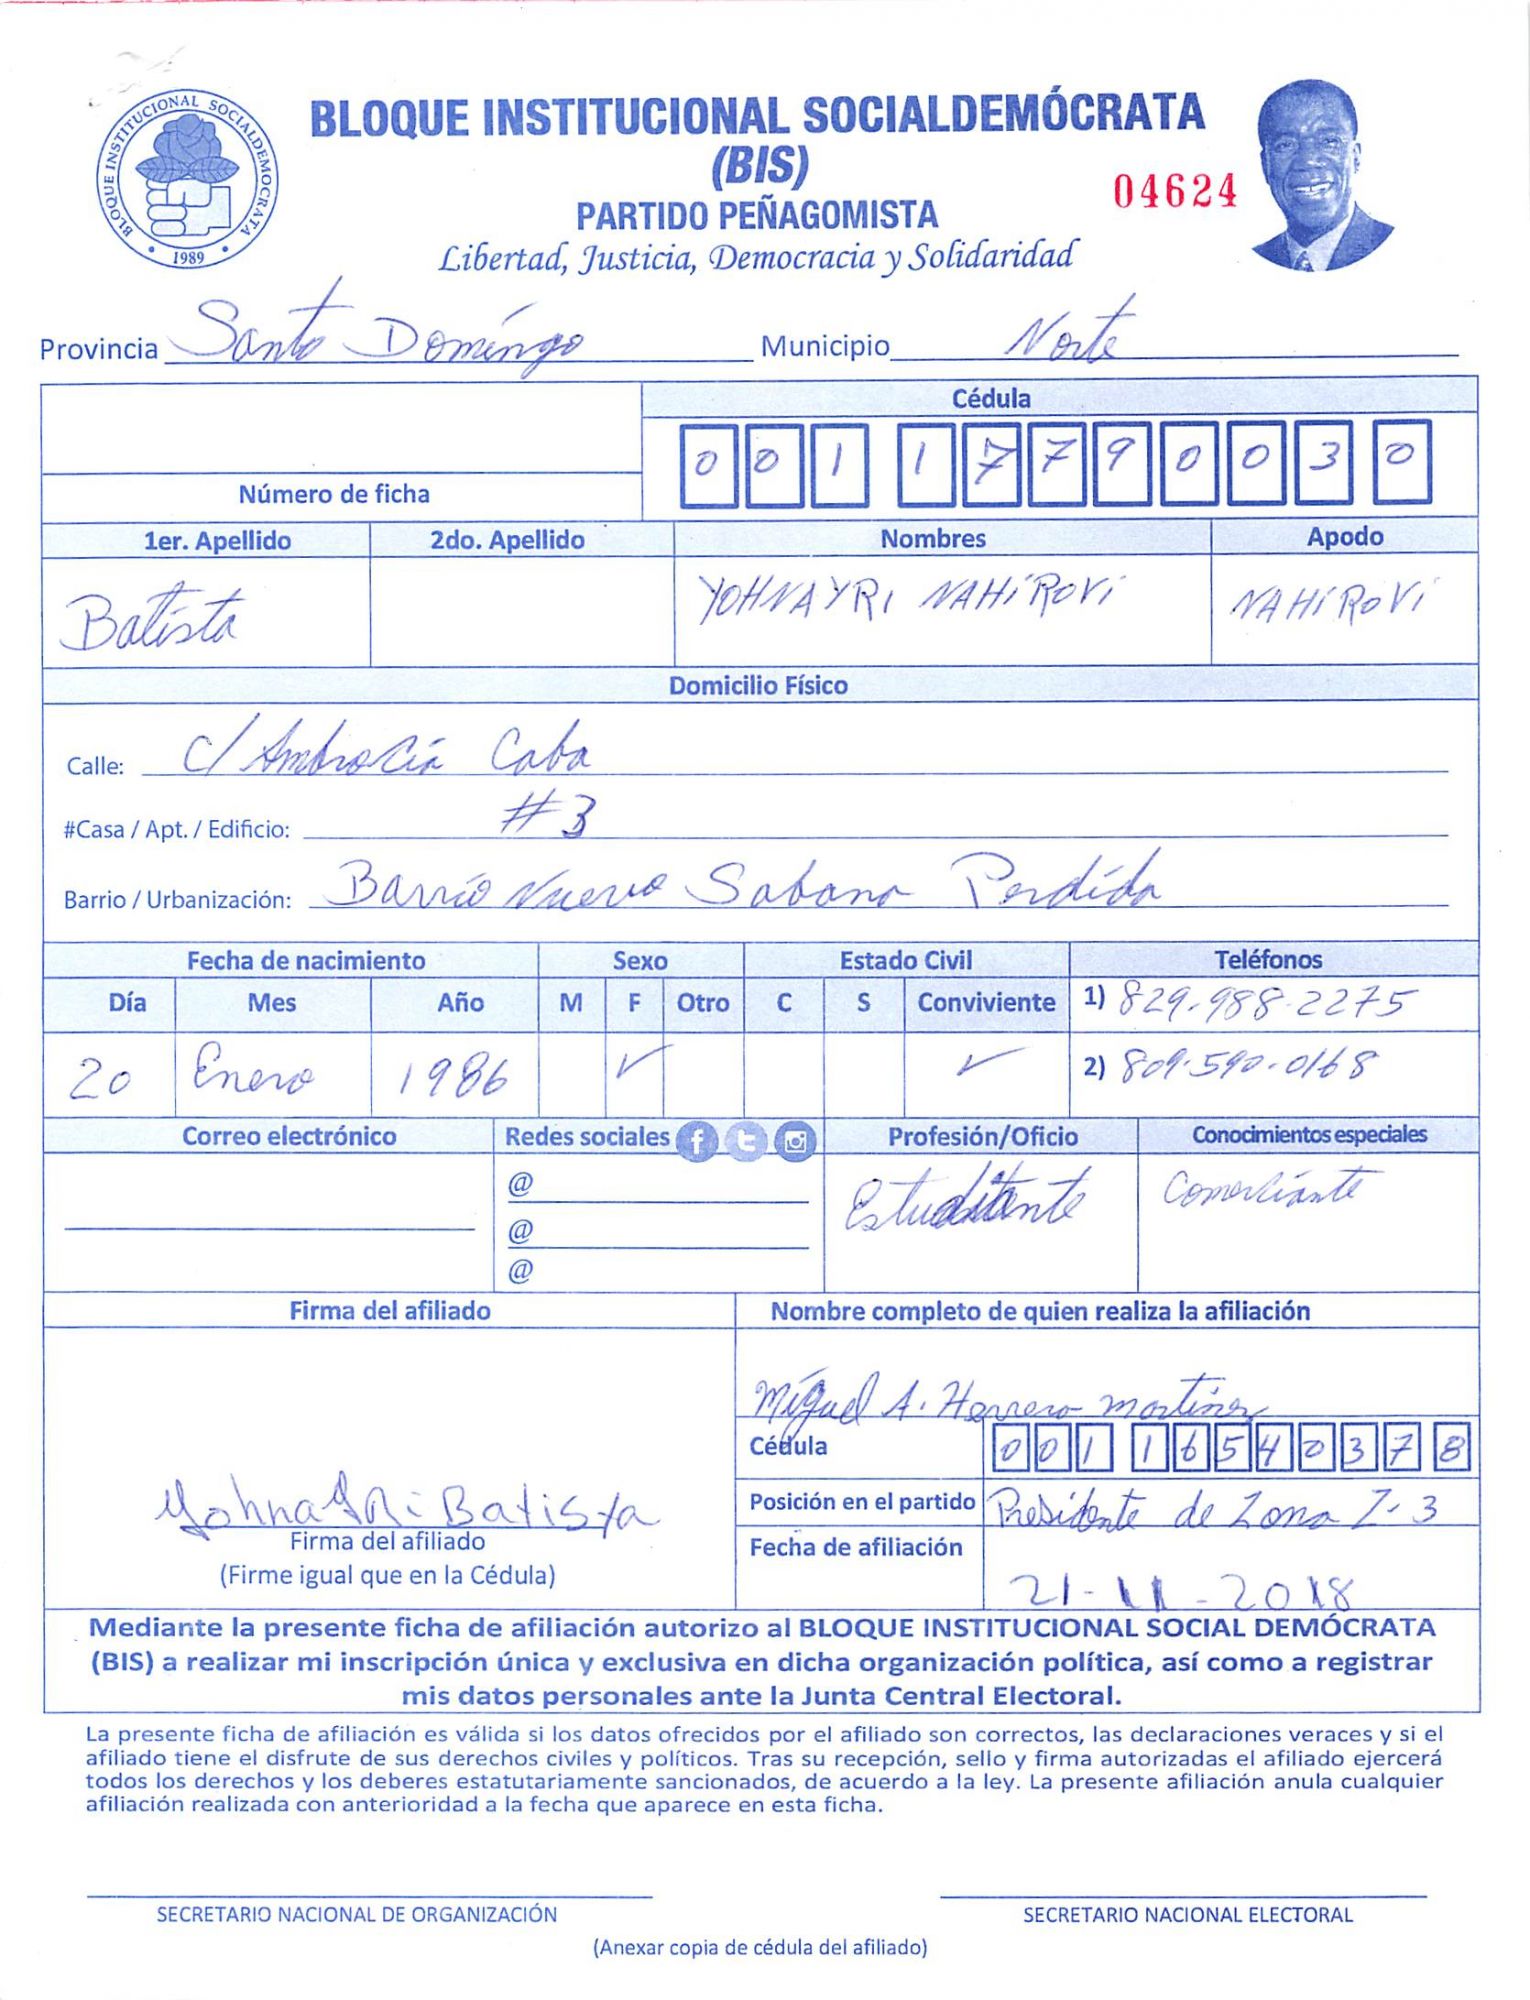 BLOQUE INSTITUCIONAL SOCIALDEMÓCRATA
BLOQUE INSTITUCIONAL SOCIALDEMÓCRATA
(BIS)
04624
PARTIDO PEÑAGOMISTA
1989
Libertad, Justicia, Democracia y Solidaridad
Provincia Santo Domingo Municipio Norte
Cédula
0 0 1 1 7 7 9 0 0 3 0
Número de ficha
1er. Apellido 2do. Apellido Nombres Apodo
Batista YOHNAYRI NAHiROVi NAHiROVi
Domicilio Físico
Calle: c/ Ambrocia Caba
#Casa / Apt. / Edificio: #3
Barrio / Urbanización: Barrio Nuevo Sabana Perdida
Fecha de nacimiento Sexo Estado Civil Teléfonos
Día Mes Año M F Otro C S Conviviente 1) 829-988-2275
20 Enero 1986 ✓ ✓ 2) 809-590-0168
Correo electrónico Redes sociales Profesión/Oficio Conocimientos especiales
@ Comerciante
@
@
Firma del afiliado Nombre completo de quien realiza la afiliación
Miguel A. Herrera Martinez
Cédula 0 0 1 1 6 5 4 0 3 7 8
Yohnayri Batista Posición en el partido Presidente de Zona Z-3
Firma del afiliado Fecha de afiliación
(Firme igual que en la Cédula) 21-11-2018
Mediante la presente ficha de afiliación autorizo al BLOQUE INSTITUCIONAL SOCIAL DEMÓCRATA
(BIS) a realizar mi inscripción única y exclusiva en dicha organización política, así como a registrar
mis datos personales ante la Junta Central Electoral.
La presente ficha de afiliación es válida si los datos ofrecidos por el afiliado son correctos, las declaraciones veraces y si el
afiliado tiene el disfrute de sus derechos civiles y políticos. Tras su recepción, sello y firma autorizadas el afiliado ejercerá
todos los derechos y los deberes estatutariamente sancionados, de acuerdo a la ley. La presente afiliación anula cualquier
afiliación realizada con anterioridad a la fecha que aparece en esta ficha.
SECRETARIO NACIONAL DE ORGANIZACIÓN SECRETARIO NACIONAL ELECTORAL
(Anexar copia de cédula del afiliado)